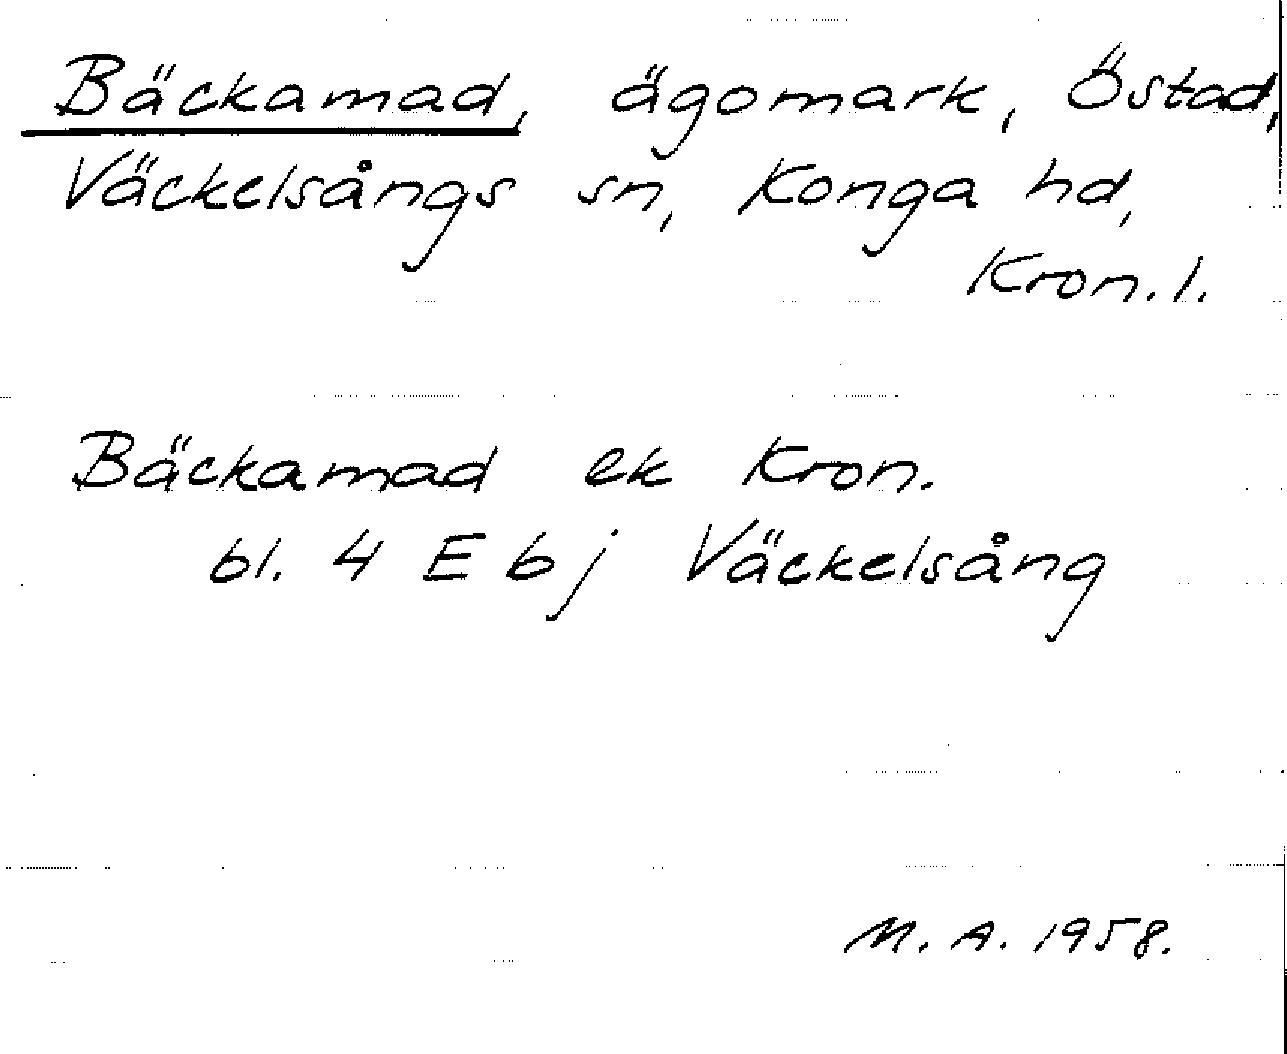 Bäckamad, ägomark, Östad,
Väckelsångs sn, Konga hd,
Kron. l.
Bäckamad ek Kron.
bl. 4 E b j Väckelsång
M. A. 1958.